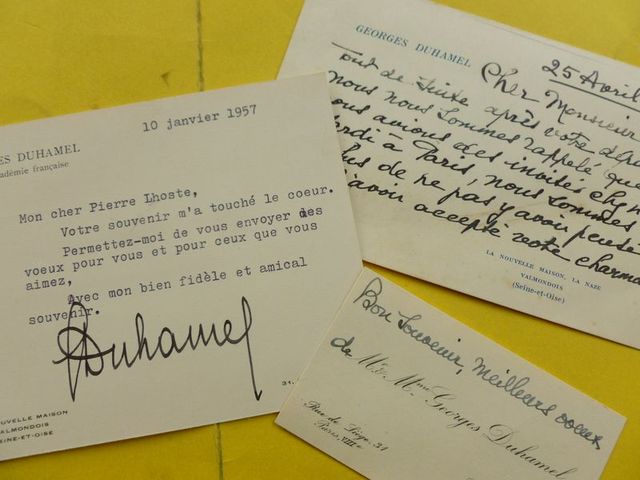 10 janvier 1957
ES DUHAMEL
adémie française
Mon cher Pierre Lhoste,
Votre souvenir m'a touché le coeur.
Permettez-moi de vous envoyer des
voeux pour vous et pour ceux que vous
aimez,
Avec mon bien fidèle et amical
souvenir.
Duhamel
OUVELLE MAISON
ALMONDOIS
EINE-ET-OISE
31,
GEORGES DUHAMEL
25 Avril
Cher Monsieur
tout de suite après votre dépa
nous nous sommes rappelé que
ous avions des invités
ardi à Paris, nous sommes
us de ne pas y avoir pensé
avoir accepté votre charma
LA NOUVELLE MAISON, LA NAZE
VALMONDOIS
(Seine-et-Oise)
Bon souvenir, meilleurs voeux
de Mr & Mme Georges Duhamel
Rue de Liège, 31
Paris, VIIIe